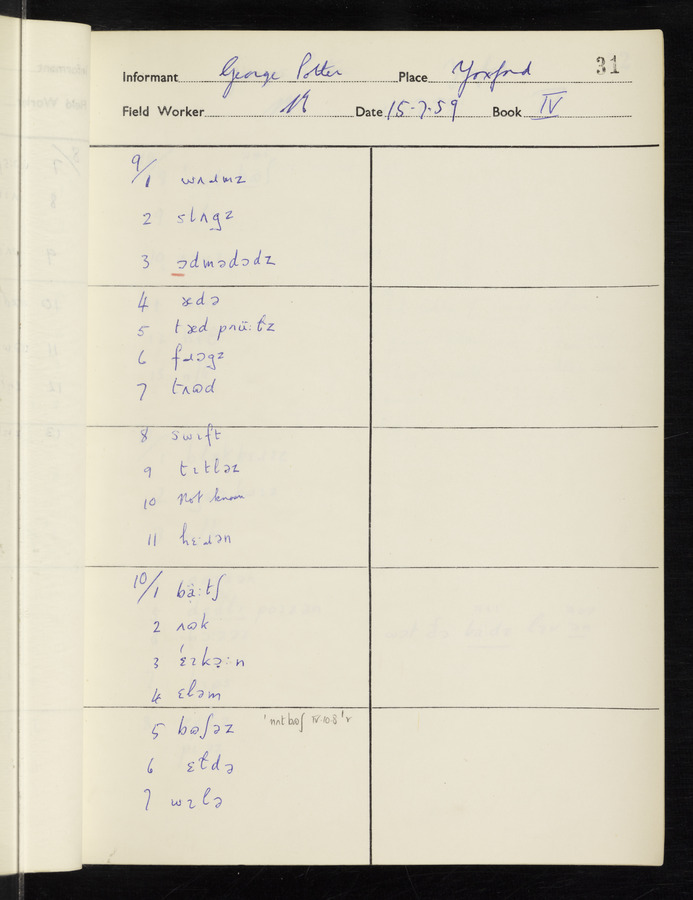 Informant George Potter Place Yoxford 31
Field Worker Date 15.7.59 Book IV
9/1 wʌɹmz
2 slʌgz
3 ədmədɔdz
4 ædə
5 tæd pnü:tz
6 fɹɔgz
7 tʌɷd
8 swɩft
9 tɩtləz
10 Not known
11 hɛ:ɹən
10/1 bä:tʃ
2 ʌɷk
3 'ɛɩkɔ̣:n
4 ɛləm
5 bɷʃəz 'nʌt bɷʃ IV.10.8' r
6 ɛɫdə
7 wɩlə